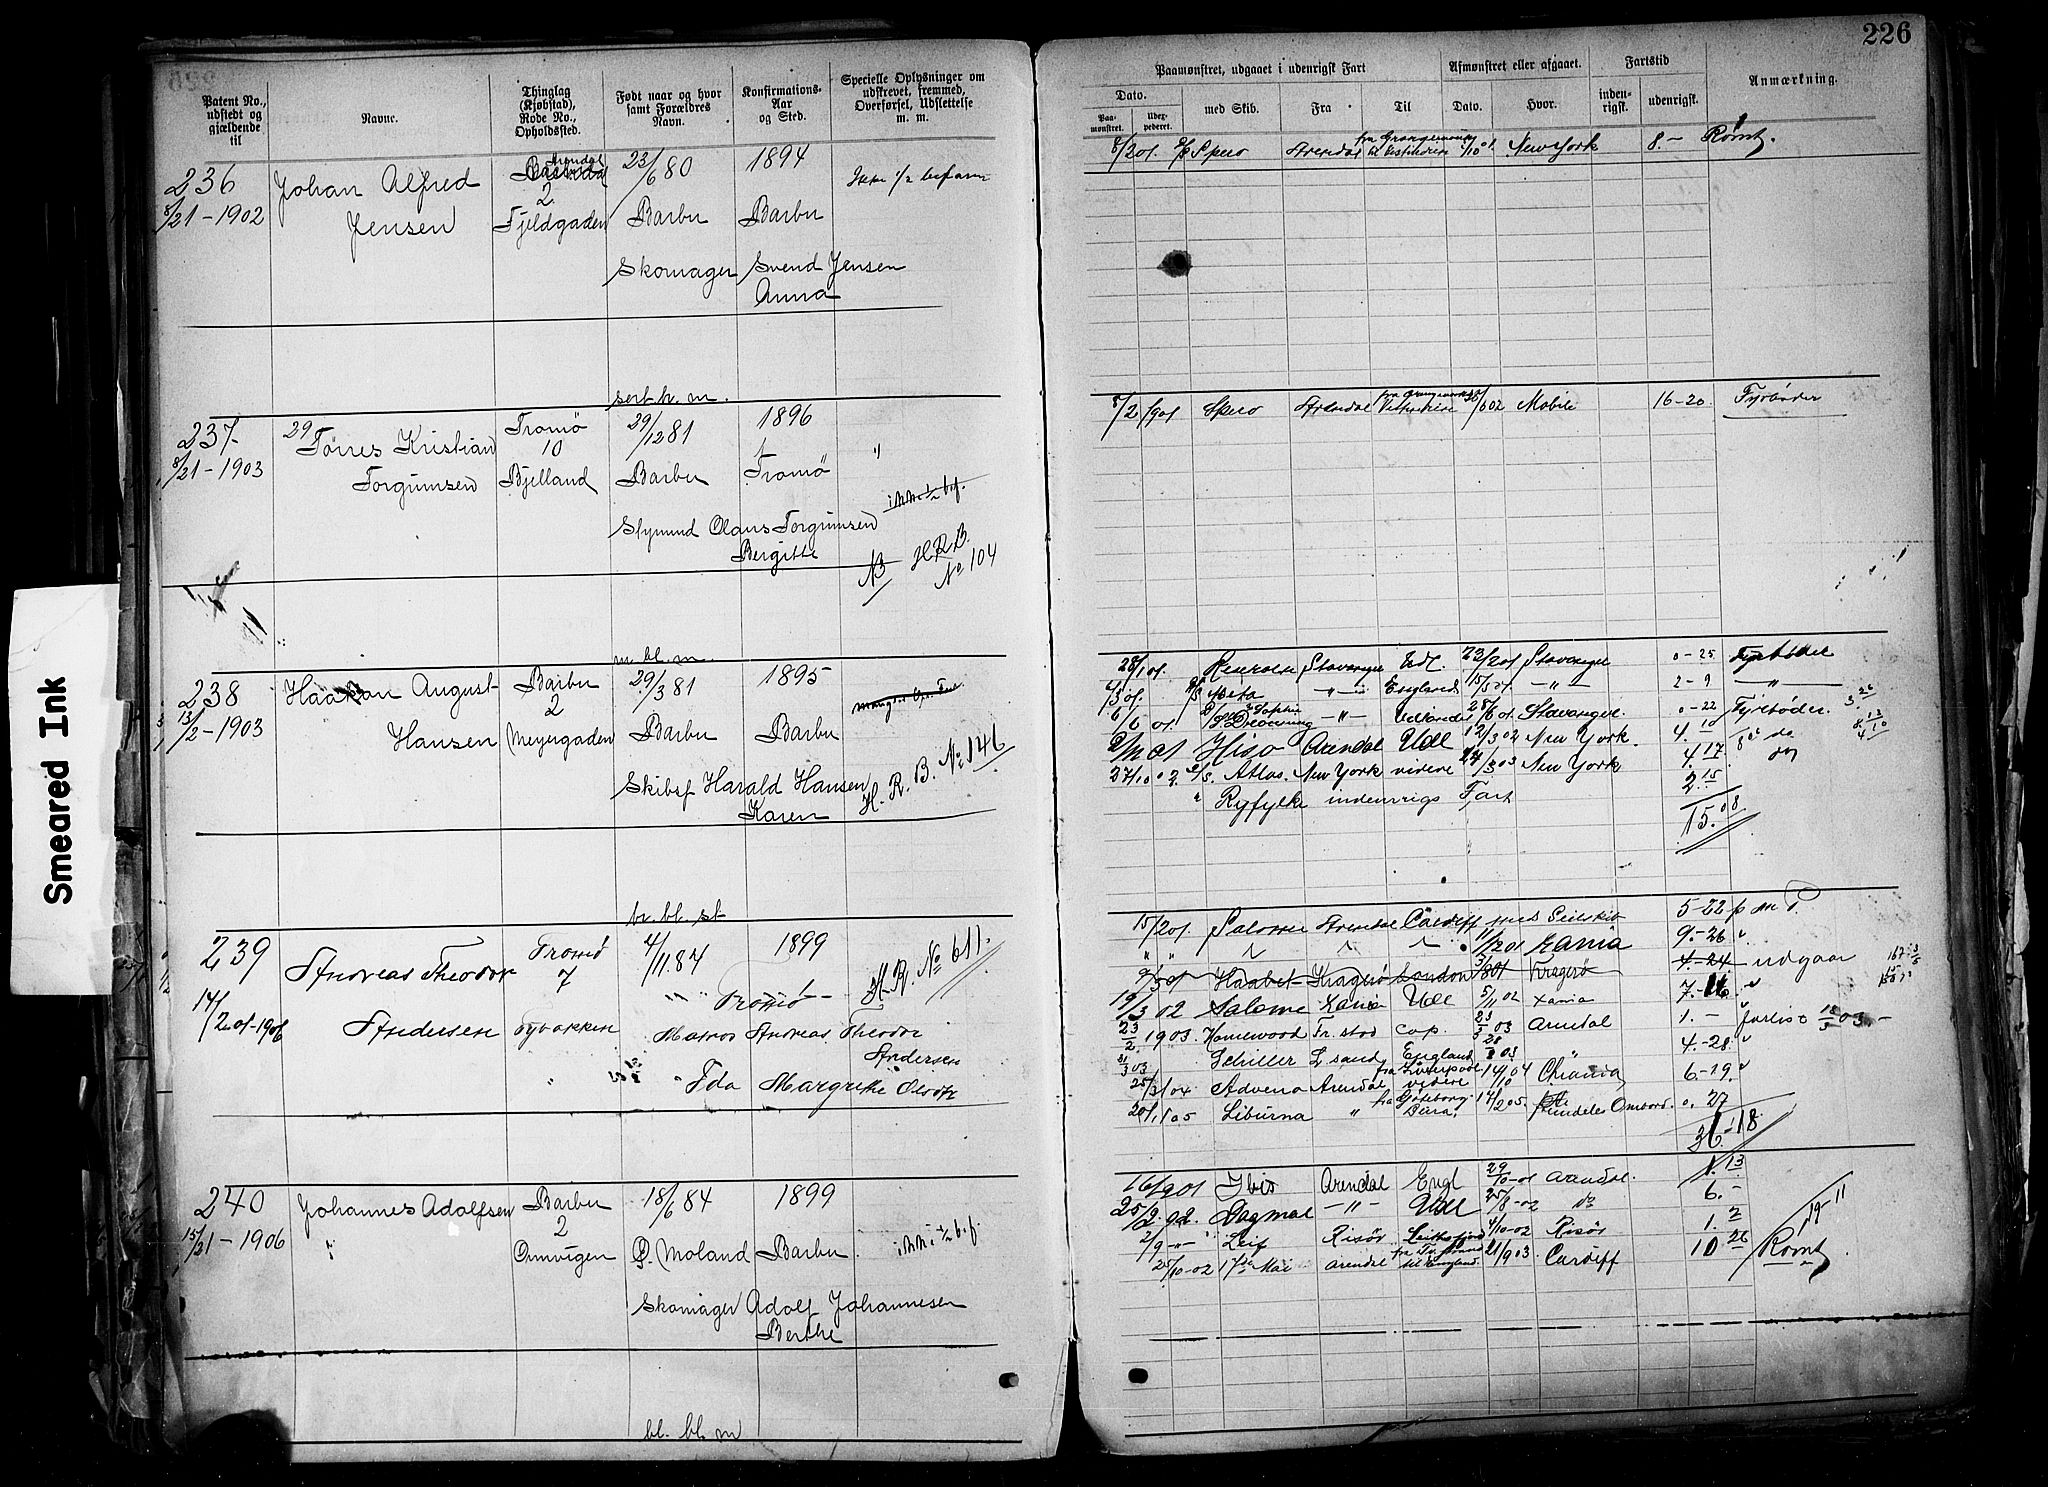 226
Patent No., udstedt og gjældende til
Navne.
Thinglag (Kjøbstad), Rode No., Opholdssted.
Født naar og hvor samt Forældres Navn.
Konfirmations-Aar og Sted.
Specielle Oplysninger om udskrevet, fremmed, Overførsel, Udslettelse m. m.
Paamønstret, udgaaet i udenrigsk Fart
Dato.
Paamønstret.
Udexpederet.
med Skib.
Fra
Til
Afmønstret eller afgaaet.
Dato.
Hvor.
Fartstid
indenrigsk.
udenrigsk.
Anmærkning.
236 Johan Alfred Arendal 23/6 80 1894 Ikke 1/2 befaren
8/21-1902 Jensen 2 Fjeldgaden Barbu Barbu
Skomager Svend Jensen
Anna
8/2 01. Spero Arendal New York 8.- Rømt.
sort. h. m.
237 29 Torres Kristian Tromø 29/12 81 1896 "
8/21-1903 Torgrimsen 10 Bjelland Barbu Tromø
ikke 1/2 bef.
Olaus Torgrimsen
Bergitte
NB H.R.B. No 104
8/2 1901 Spero Arendal 02 Mobile 16-20. Fyrbøder
m. bl. m.
238 Haakon August Barbu 29/3 81 1895
13/2-1903 Hansen 2 Meyergaden Barbu Barbu
Skibsf Harald Hansen
Karen
H. R. B. No 146
28/1 01. Stavanger Udl. 23/2 01 Stavanger 0-25 Fyrbøder
1/3 01. Beta -"- England 15/5 01. -"- 2-9 -"-
6/6 01 Sophie Browning -"- Udlandet 28/6 01. Stavanger. 0-22 Fyrbøder.
Hiso Arendal Udl 12/3 02 New York. 4.10 do
27/10 02 Atlas. New York videre 24/3 03 New York 4.17
" Ryfylke indenrigs Fart 2.15
15.08
br. bl. st
239 Andreas Theodor Tromø 4/11.84 1899
14/2 01-1906 Andersen 7 Tybakken " Tromø -
H.R. No 611.
Matros Andreas Theodor
Andersen
" Ida Margrethe
15/2 01. Salome Arendal Cardiff med Seilskib 5-22 p m P.
" " 11/7 01 Xania 9.-26 "
9/5 01 Haabet Kragerø London 3/8 01 Kragerø 4.-24. udgaar
19/3 02 Salome Xania Udl 5/11 02 Xania 7.-16 "
23/2 1903. Homewood Fr. stad cap. 23/3 03 Arendal 1.- "
31/3 03 Schiller L sand England 28/8 03 " 4.-28. "
25/3 04 Advena Arendal fra Liverpool videre 14/10 04 Chrania 6.-19. "
20/1 05 Liburna " fra Göteborg 14/2 05. Arendeles Ombord. 0. 27
36-18
240 Johannes Adolfsen Barbu 18/6 84 1899
15/21-1906 " 2 Omvigen Ø. Moland Barbu
ikke 1/2 bef
Skomager Adolf Johannesen
Berthe
16/2 01 Ibis Arendal Engl 29/10-01 Arendal. 1.13
25/2.02. Dagmar -"- Udl 25/8-02 do 6.-
2/9-"- Leif Risør 4/10-02 Risør 1.2
25/10-02 17de Mai Arendal til England 21/9 03 Cardiff 10 26 Rømt
19-11
bl. bl. m
Smeared Ink